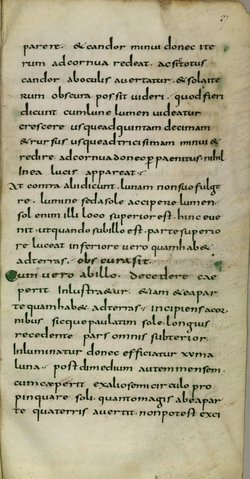 parere & candor minui donec ite
rum adcornua redeat. acsictotus
candor aboculis avertatur. & solaite
rum obscura possit videri. quodfieri
dicunt cumlune lumen videatur
crescere usqueadquintam decimam
& rursus usqueadtricisimam minui &
redire adcornua donec penitus nihil
Inea lucis appareat.
At contra alii dicunt. lunam nonsuo fulge
re. lumine sedasole accipere lumen.
sol enim illi loco superior est. hinc eve
nit. utquando subillo est. parte superio
re luceat inferiore vero quam hab&
adterras. obscurasit.
Cum vero abillo. decedere cae
perit Inlustra&ur. & iam & eapar
te quam hab& adterras. incipiens acor
nibus sicque paulatim sole. longius
recedente pars omnis subterior.
Inluminatur donec efficiatur xvma
luna. post dimedium autem mensem.
cum cæperit exalio semicirculo pro
pinquare soli. quantomagis abeapar
te quaterris avertit. nonpotest exci